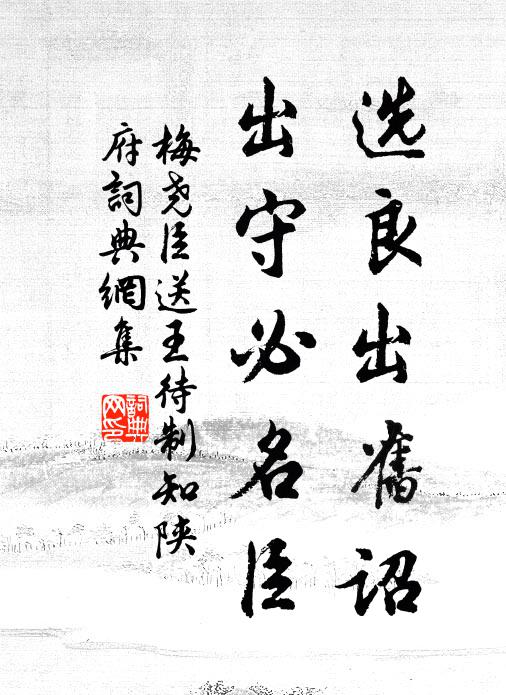 选良出舊诏
出守必名臣
梅尧臣送王待制知陕
府詞典網集
詞典
网印